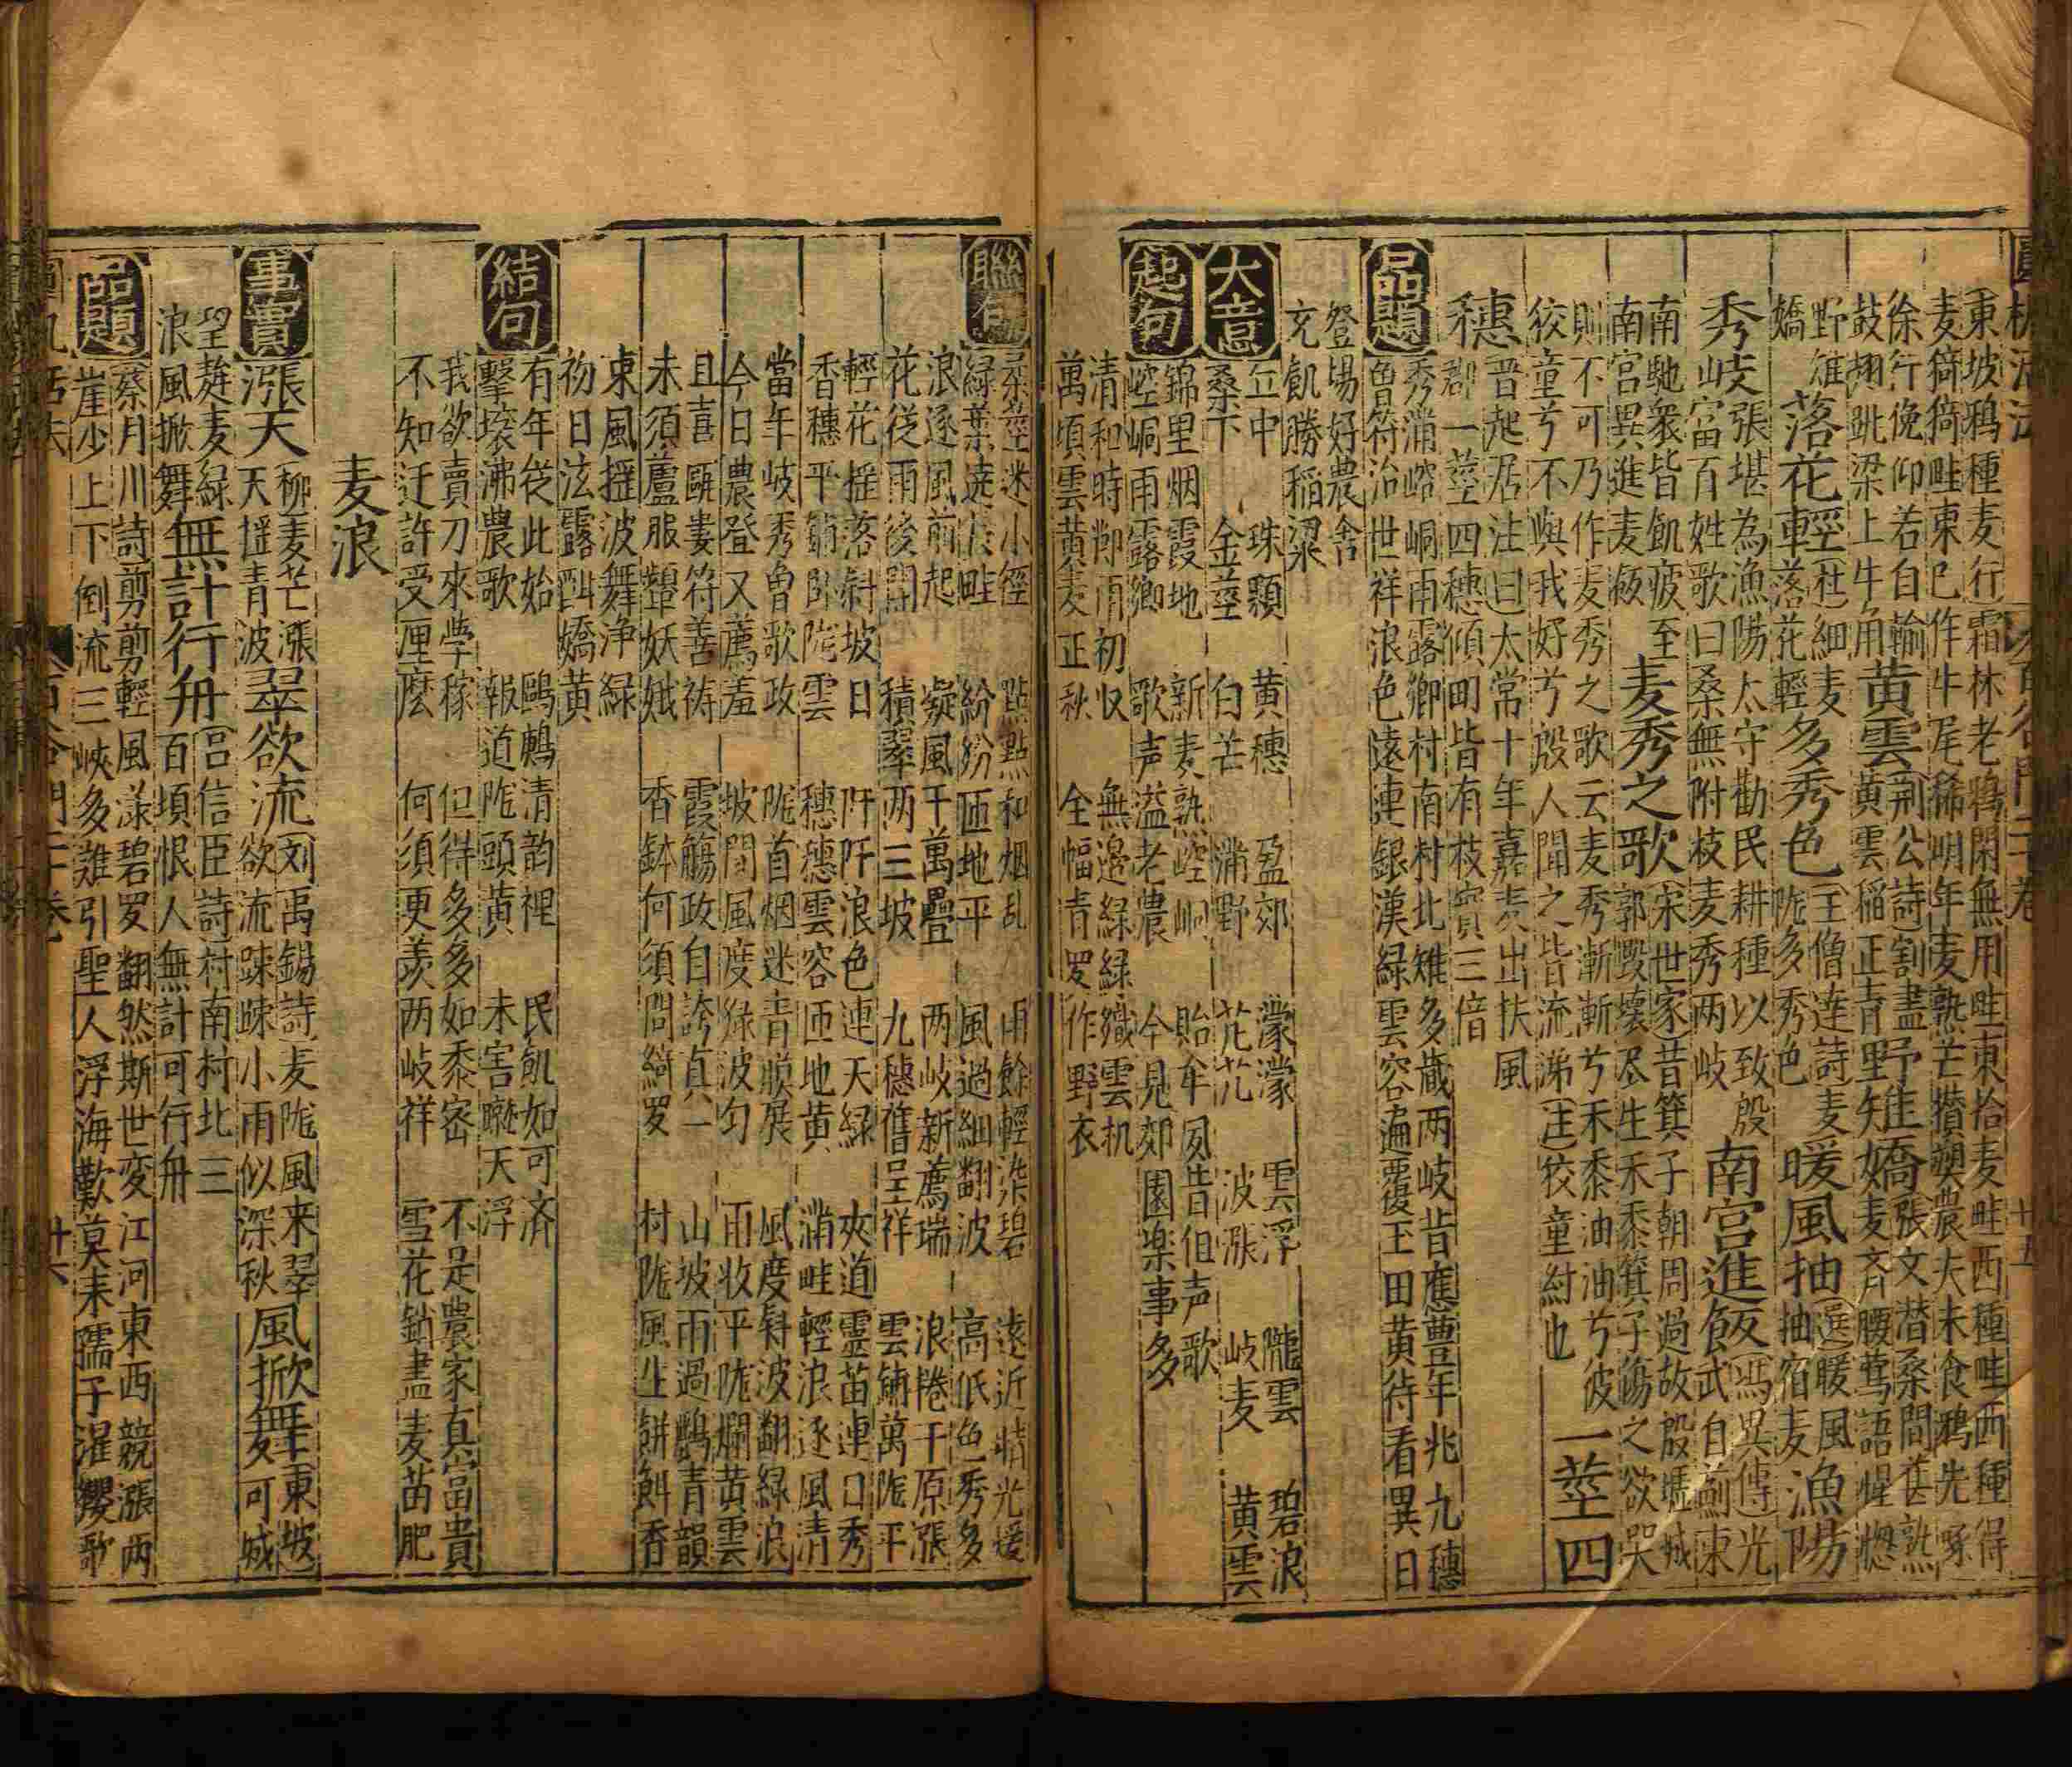 東坡鴉種麦行霜林老鴉閑無用畦東拾麦畦西種畦西種得
麦猗猗畦東已作牛尾稀明年麦熟芒攢槊農夫未食鴉先啄
徐行俛仰若自輸
鼓翅跳梁上牛角
黄雲
荊公詩割盡
黄雲稲正青
野雉嬌
張文潜桑間葚熟
野里雉嬌麦斉腰鶯語惺憁
野雉
嬌
落花輕
杜細麦
落花輕
多秀色
王僧達詩麦
隴多秀色
暖風抽
選暖風
抽宿麦
漁陽
秀岐
張堪為漁陽太守勸民耕種以致殷
富百姓歌曰桑無附枝麦秀両岐
南宮進飯
馮異傳光
武自薊東
南馳衆皆飢疲至
南宮異進麦飯
麦秀之歌
宋世家昔箕子朝周過故殷墟城
郭毀壊尽生禾黍箕子傷之欲哭
則不可乃作麦秀之歌云麦秀漸漸兮禾黍油油兮彼
狡童兮不與我好兮殷人聞之皆流涕註狡童紂也
一莖四
穗
晋起居注曰太常十年嘉麦出扶風
郡一莖四穗傾畝皆有枝實三倍
品題
秀滿崆峒雨露郷村南村北雉多蔵両岐昔應豊年兆九穗
魯符治世祥浪色遠連銀漢緑雲容遍覆玉田黄待看異日
登場好農舎
充飢勝稲粱
大意
丘中 珠顆 黄穗 盈郊 濛濛 雲浮 隴雲 碧浪
桑下 金莖 白芒 滿野 芃芃 波漲 岐麦 黄雲
起句
錦里烟霞地 新麦熟崆峒 貽牟夙昔但声歌
崆峒雨露郷 歌声溢老農 今見郊園楽事多
清和時節雨初収 無邉緑緑織雲机
萬頃雲黄麦正秋 全幅青罗作野衣
聯句
柔莖迷小徑 點點和烟乱 雨餘輕染碧 遠近晴光煖
緑葉遶長畦 紛紛匝地平 風過細翻波 高低色秀多
浪逐風前起 凝風千萬疊 両岐新薦瑞 浪捲千原漲
花従雨後開 積翠両三坡 九穗舊呈祥 雲鋪萬隴平
輕花揺落斜坡日 阡阡浪色連天緑 夾道靈苗連口秀
香穗平鋪卧隴雲 穗穗雲容匝地黄 滿畦輕浪逐風清
當年岐秀魯歌政 隴首烟迷青嶂展 風度斜波翻緑浪
今日農登又薦羞 坡間風度緑波匀 雨收平隴爛黄雲
且喜甌婁符善祷 霞觴政自誇真一 山坡雨過鸚青韻
未須蘆服犨妖娥 香缽何須問綺罗 村隴風生餅餌香
東風揺波舞浄緑
初日泫露酣嬌黄
結句
有年従此始 鷗鵣清韵裡 民飢如可济
擊壌沸農歌 報道隴頭黄 未害瞇天浮
我欲賣刀來學稼 但得多多如黍密 不是農家真富貴
不知迂許受厘麽 何須更羨両岐祥 雪花銷盡麦苗肥
麦浪
事實
漲天
柳麦芒漲
天揺青波
翠欲流
刘禹錫詩麦隴風来翠
欲流踈踈小雨似深秋
風掀舞
東坡
可城
望麰麦緑
浪風掀舞
無計行舟
呂信臣詩村南村北三
百頃恨人無計可行舟
品題
蔡月川詩剪剪輕風漾碧罗翻然斯世変江河東西競漲两
崖少上下倒流三峽多難引聖人浮海歎莫来孺子濯纓歌
十六